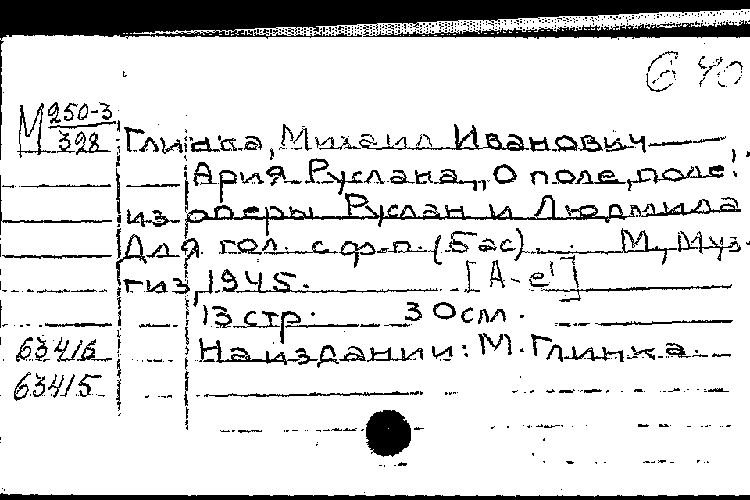 6 40
М 250-3
328
Глинка, Михаил Иванович
Ария Руслана „О поле, поле!"
из оперы Руслан и Людмила
Для гол. с ф.-п. (Бас). М., Муз-
гиз, 1945. [A-e']
13 стр. 30 см.
63416 На издании: М. Глинка.
63415